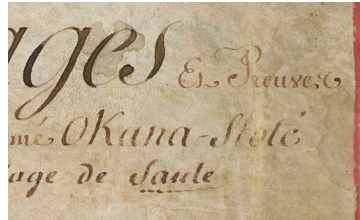 ages Es Preuves
mé OKana-Stoté
age de Saute